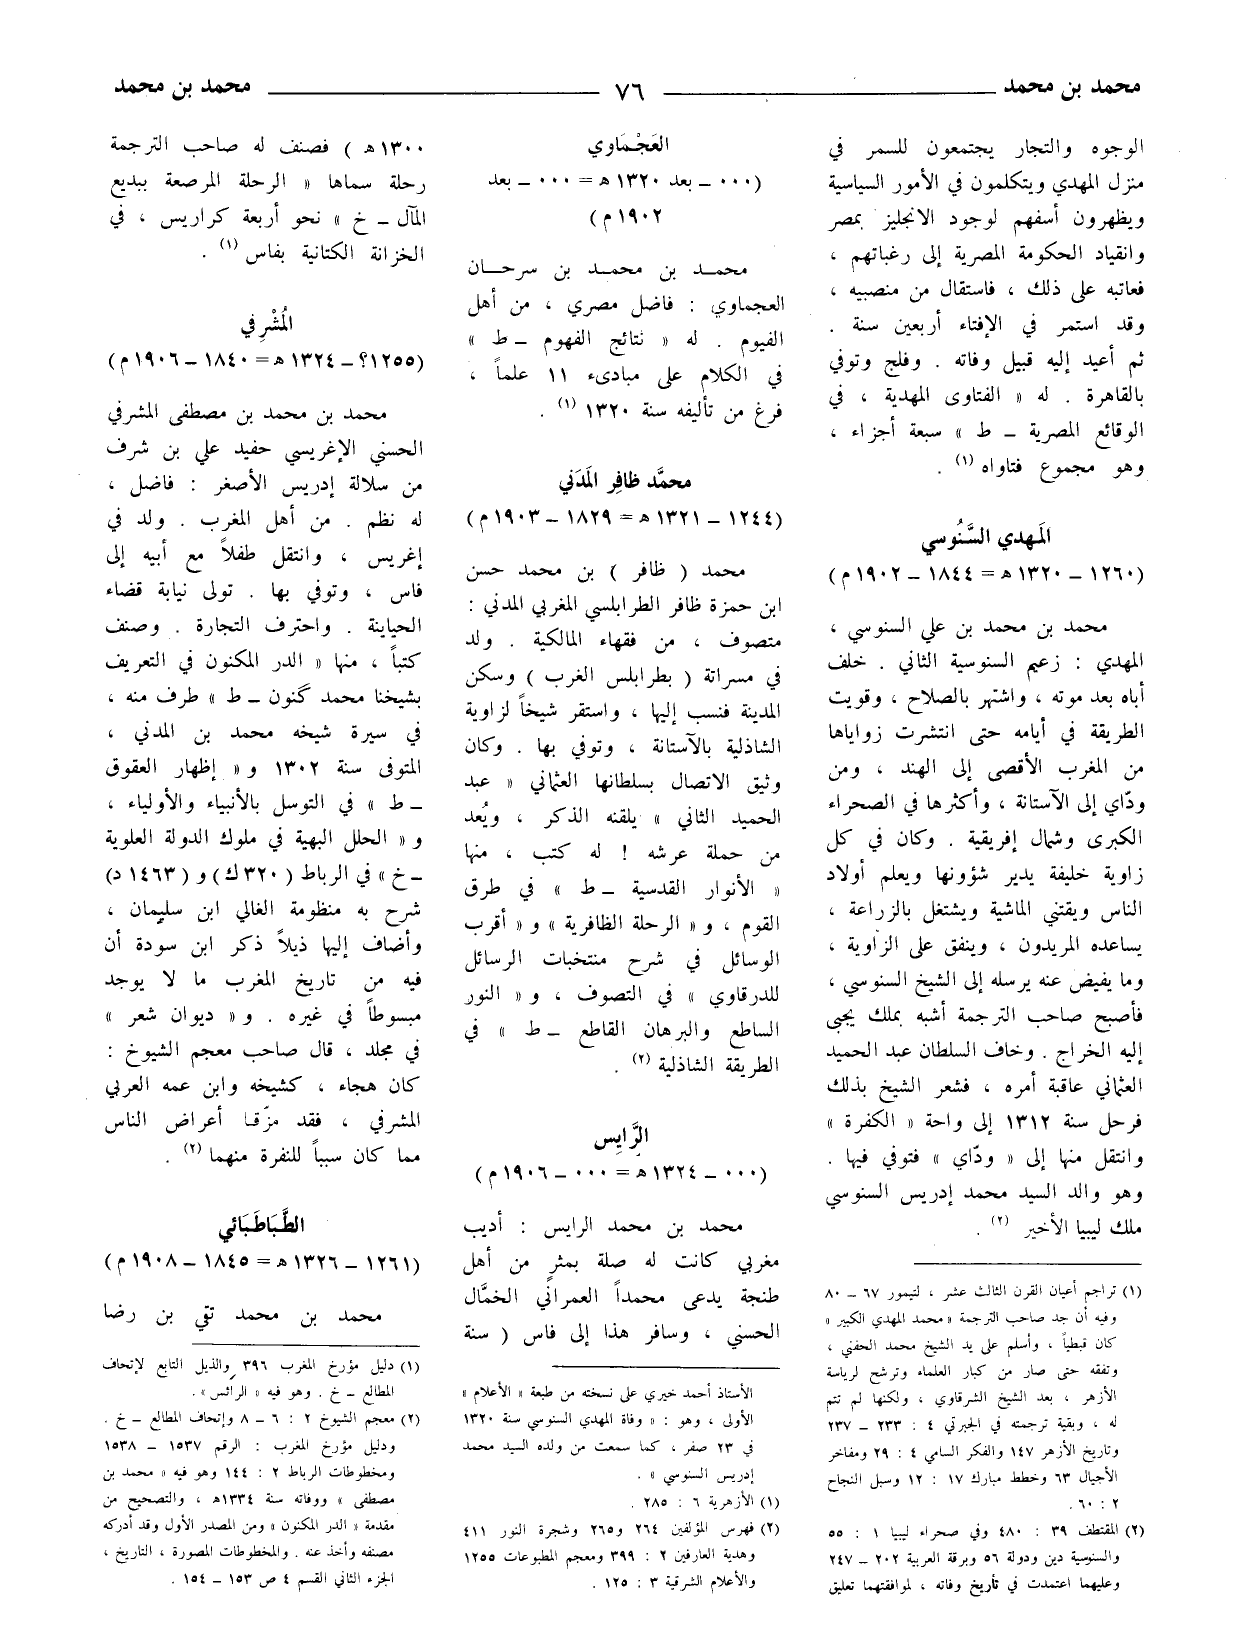 محمد بن محمد ٧٦ محمد بن محمد
الوجوه والتجار يجتمعون للسمر في
منزل المهدي ويتكلمون في الأمور السياسية
ويظهرون أسفهم لوجود الانجليز بمصر
وانقياد الحكومة المصرية إلى رغباتهم ،
فعاتبه على ذلك ، فاستقال من منصبيه ،
وقد استمر في الإفتاء أربعين سنة .
ثم أعيد إليه قبيل وفاته . وفلج وتوفي
بالقاهرة . له « الفتاوى المهدية ، في
الوقائع المصرية ـ ط » سبعة أجزاء ،
وهو مجموع فتاواه (١) .
المَهدي السَّنُوسي
(١٢٦٠ ـ ١٣٢٠ ه = ١٨٤٤ ـ ١٩٠٢ م)
محمد بن محمد بن علي السنوسي ،
المهدي : زعيم السنوسية الثاني . خلف
أباه بعد موته ، واشتهر بالصلاح ، وقويت
الطريقة في أيامه حتى انتشرت زواياها
من المغرب الأقصى إلى الهند ، ومن
ودّاي إلى الآستانة ، وأكثرها في الصحراء
الكبرى وشمال إفريقية . وكان في كل
زاوية خليفة يدير شؤونها ويعلم أولاد
الناس ويقتني الماشية ويشتغل بالزراعة ،
يساعده المريدون ، وينفق على الزاوية ،
وما يفيض عنه يرسله إلى الشيخ السنوسي ،
فأصبح صاحب الترجمة أشبه بملك يجبى
إليه الخراج . وخاف السلطان عبد الحميد
العثماني عاقبة أمره ، فشعر الشيخ بذلك
فرحل سنة ١٣١٢ إلى واحة « الكفرة »
وانتقل منها إلى « ودّاي » فتوفي فيها .
وهو والد السيد محمد إدريس السنوسي
ملك ليبيا الأخير (٢) .
(١) تراجم أعيان القرن الثالث عشر ، لتيمور ٦٧ ـ ٨٠
وفيه أن جد صاحب الترجمة «محمد المهدي الكبير »
كان قبطياً ، وأسلم على يد الشيخ محمد الحفني ،
وتفقه حتى صار من كبار العلماء وترشح لرياسة
الأزهر ، بعد الشيخ الشرقاوي ، ولكنها لم تتم
له ، وبقية ترجمته في الجبرتي ٤ : ٢٣٣ ـ ٢٣٧
وتاريخ الأزهر ١٤٧ والفكر السامي ٤ : ٢٩ ومفاخر
الأجيال ٦٣ وخطط مبارك ١٧ : ١٢ وسبل النجاح
٢ : ٦٠ .
(٢) المقتطف ٣٩ : ٤٨٠ وفي صحراء ليبيا ١ : ٥٥
والسنوسية دين ودولة ٥٦ وبرقة العربية ٢٠٢ ـ ٢٤٧
وعليهما اعتمدت في تأريخ وفاته ، لموافقتهما تعليق
العَجْمَاوي
(٠٠٠ ـ بعد ١٣٢٠ ه = ٠٠٠ ـ بعد
١٩٠٢ م)
محمد بن محمد بن سرحان
العجماوي : فاضل مصري ، من أهل
الفيوم . له « نتائج الفهوم ـ ط »
في الكلام على مبادىء ١١ علماً ،
فرغ من تأليفه سنة ١٣٢٠ (١) .
محمَّد ظافِر المَدَني
(١٢٤٤ ـ ١٣٢١ ه = ١٨٢٩ ـ ١٩٠٣ م)
محمد ( ظافر ) بن محمد حسن
ابن حمزة ظافر الطرابلسي المغربي المدني :
متصوف ، من فقهاء المالكية . ولد
في مسراتة ( بطرابلس الغرب ) وسكن
المدينة فنسب إليها ، واستقر شيخاً لزاوية
الشاذلية بالآستانة ، وتوفي بها . وكان
وثيق الاتصال بسلطانها العثماني « عبد
الحميد الثاني » يلقنه الذكر ، ويُعد
من حملة عرشه ! له كتب ، منها
« الأنوار القدسية ـ ط » في طرق
القوم ، و « الرحلة الظافرية » و « أقرب
الوسائل في شرح منتخبات الرسائل
للدرقاوي » في التصوف ، و « النور
الساطع والبرهان القاطع ـ ط » في
الطريقة الشاذلية (٢) .
الرَّايِس
(٠٠٠ ـ ١٣٢٤ ه = ٠٠٠ ـ ١٩٠٦ م)
محمد بن محمد الرايس : أديب
مغربي كانت له صلة بمثرٍ من أهل
طنجة يدعى محمداً العمراني الخمَّال
الحسني ، وسافر هذا إلى فاس ( سنة
الأستاذ أحمد خيري على نسخته من طبعة « الأعلام »
الأولى ، وهو : « وفاة المهدي السنوسي سنة ١٣٢٠
في ٢٣ صفر ، كما سمعت من ولده السيد محمد
إدريس السنوسي » .
(١) الأزهرية ٦ : ٢٨٥ .
(٢) فهرس المؤلفين ٢٦٤ و٢٦٥ وشجرة النور ٤١١
وهدية العارفين ٢ : ٣٩٩ ومعجم المطبوعات ١٢٥٥
والأعلام الشرقية ٣ : ١٢٥ .
١٣٠٠ ه ) فصنف له صاحب الترجمة
رحلة سماها « الرحلة المرصعة ببديع
المآل ـ خ » نحو أربعة كراريس ، في
الخزانة الكتانية بفاس (١) .
المُشْرِفي
(١٢٥٥؟ ـ ١٣٢٤ ه = ١٨٤٠ ـ ١٩٠٦ م)
محمد بن محمد بن مصطفى المشرفي
الحسني الإغريسي حفيد علي بن شرف
من سلالة إدريس الأصغر : فاضل ،
له نظم . من أهل المغرب . ولد في
إغريس ، وانتقل طفلاً مع أبيه إلى
فاس ، وتوفي بها . تولى نيابة قضاء
الحياينة . واحترف التجارة . وصنف
كتباً ، منها « الدر المكنون في التعريف
بشيخنا محمد گنون ـ ط » طرف منه ،
في سيرة شيخه محمد بن المدني ،
المتوفى سنة ١٣٠٢ و « إظهار العقوق
ـ ط » في التوسل بالأنبياء والأولياء ،
و « الحلل البهية في ملوك الدولة العلوية
ـ خ » في الرباط ( ٣٢٠ ك) و (١٤٦٣ د)
شرح به منظومة الغالي ابن سليمان ،
وأضاف إليها ذيلاً ذكر ابن سودة أن
فيه من تاريخ المغرب ما لا يوجد
مبسوطاً في غيره . و « ديوان شعر »
في مجلد ، قال صاحب معجم الشيوخ :
كان هجاء ، كشيخه وابن عمه العربي
المشرفي ، فقد مزّقا أعراض الناس
مما كان سبباً للنفرة منهما (٢) .
الطَّبَاطَبَائي
(١٢٦١ ـ ١٣٢٦ ه = ١٨٤٥ ـ ١٩٠٨ م)
محمد بن محمد تقي بن رضا
(١) دليل مؤرخ المغرب ٣٩٦ والذيل التابع لإتحاف
المطالع ـ خ . وهو فيه « الرائس» .
(٢) معجم الشيوخ ٢ : ٦ ـ ٨ وإتحاف المطالع ـ خ .
ودليل مؤرخ المغرب : الرقم ١٥٣٧ ـ ١٥٣٨
ومخطوطات الرباط ٢ : ١٤٤ وهو فيه « محمد بن
مصطفى » ووفاته سنة ١٣٣٤ه ، والتصحيح من
مقدمة « الدر المكنون » ومن المصدر الأول وقد أدركه
مصنفه وأخذ عنه . والمخطوطات المصورة ، التاريخ ،
الجزء الثاني القسم ٤ ص ١٥٣ ـ ١٥٤ .